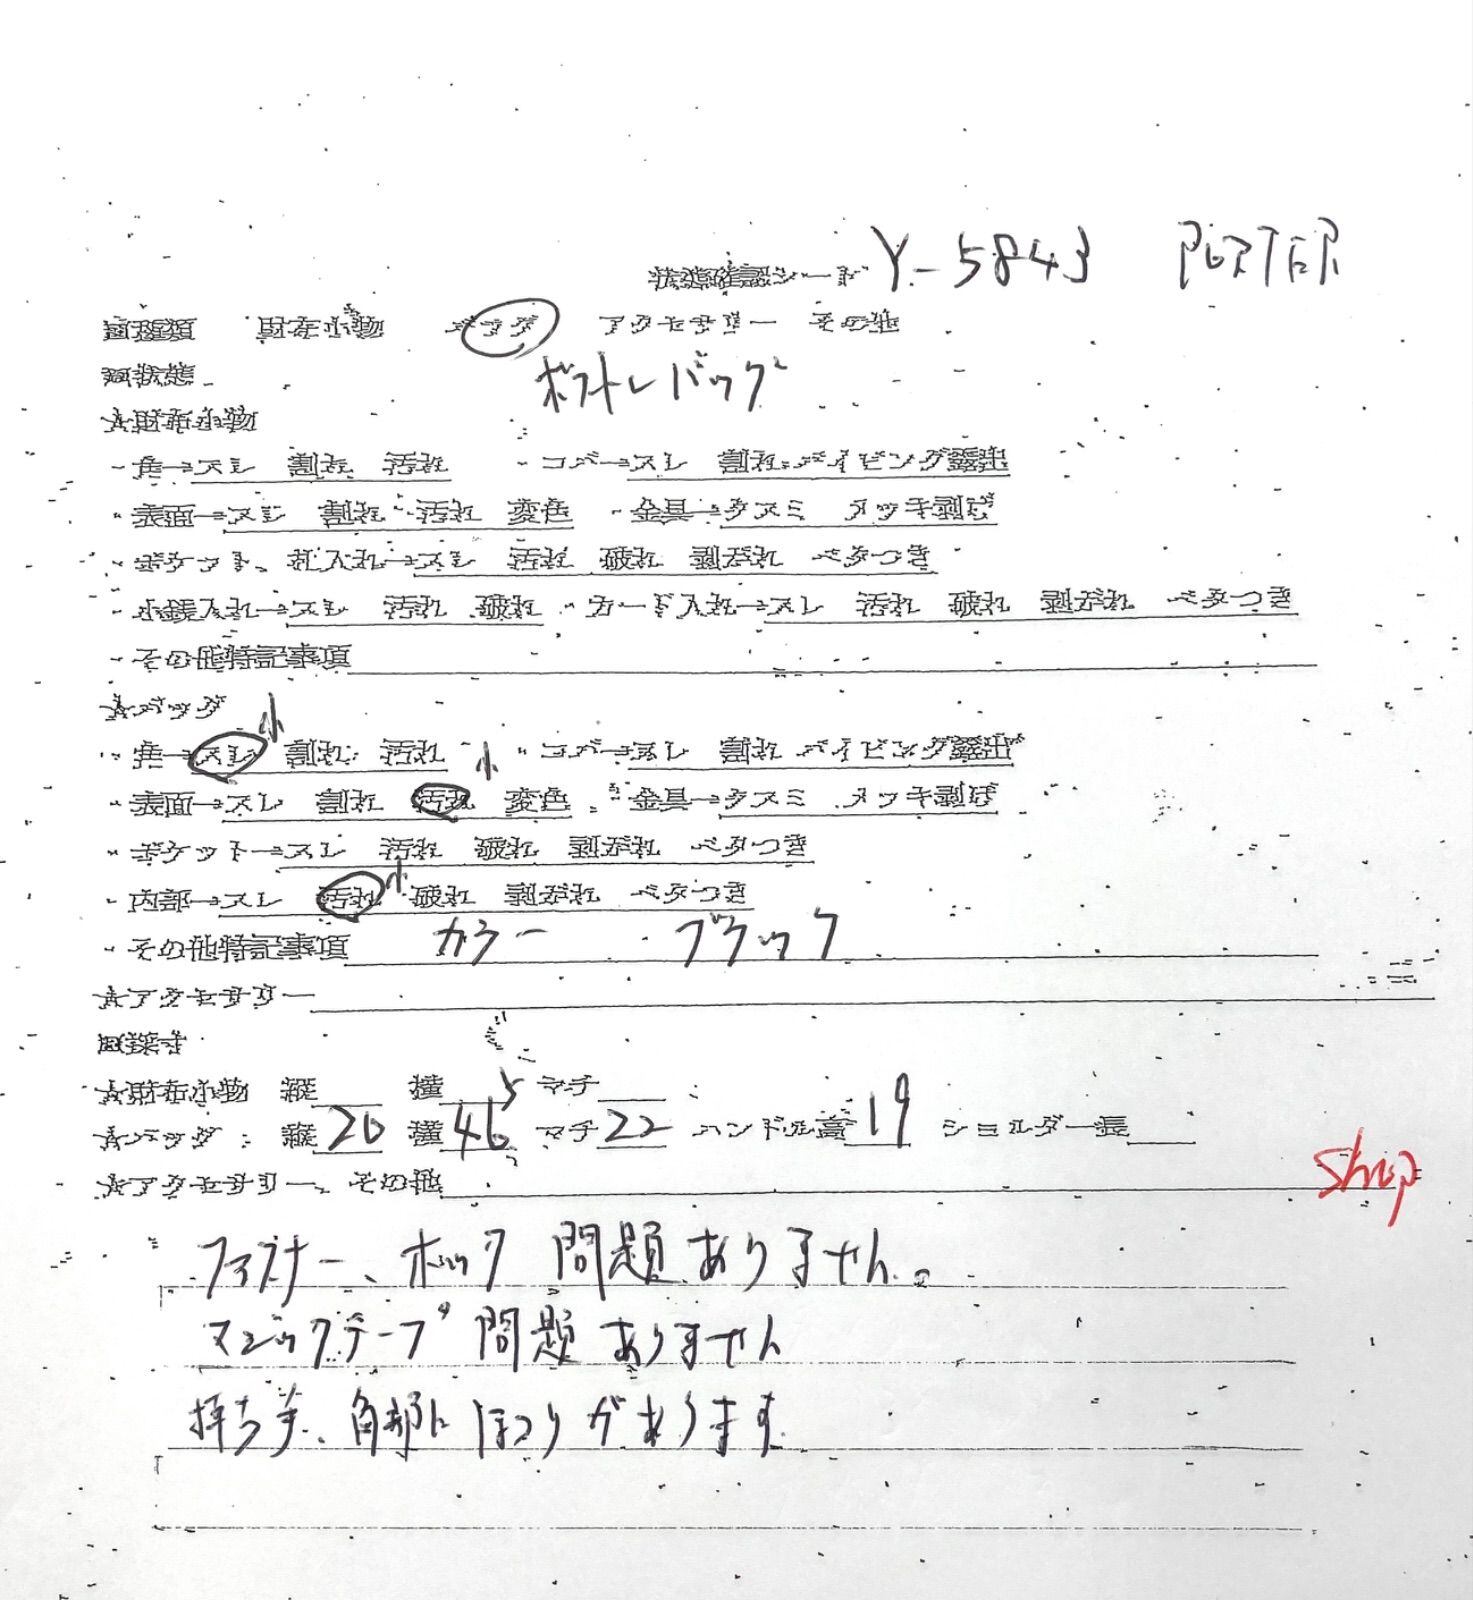 状態確認シート Y-5843 PORTER
■種類 財布小物 バッグ アクセサリー その他
■状態 ボストンバッグ
★財布小物
・角→スレ 割れ 汚れ ・コバ→スレ 割れ パイピング露出
・表面→スレ 割れ 汚れ 変色 ・金具→クスミ メッキ剥げ
・ポケット、札入れ→スレ 汚れ 破れ 剥がれ ベタつき
・小銭入れ→スレ 汚れ 破れ ・カード入れ→スレ 汚れ 破れ 剥がれ ベタつき
・その他特記事項
★バッグ
・角→スレ 小 割れ 汚れ ・コバ→スレ 割れ パイピング露出
・表面→スレ 割れ 汚れ 小 変色 ・金具→クスミ メッキ剥げ
・ポケット→スレ 汚れ 破れ 剥がれ ベタつき
・内部→スレ 汚れ 小 破れ 剥がれ ベタつき
・その他特記事項 カラー ブラック
★アクセサリー
■採寸
★財布小物 縦 横 マチ
★バッグ : 縦 26 横 46 マチ 22 ハンドル高 19 ショルダー長
★アクセサリー、その他
Shop
ファスナー、ホック 問題ありません。
マジックテープ 問題ありません
持ち手、角部にほつりがあります